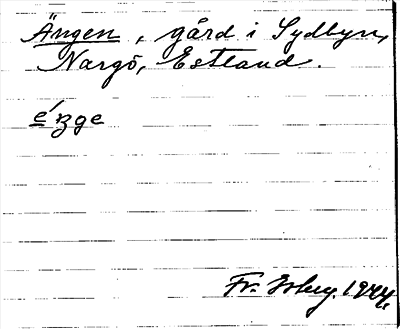 Ängen, gård i Sydbyn,
Nargö, Estland.
éŋge
Fr. 1944.